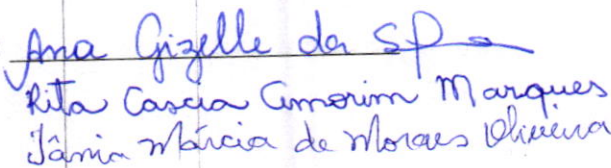 Ana Gizelle da
Rita Cascia Amorim Marques
Tânia Márcia de Moraes Oliveira